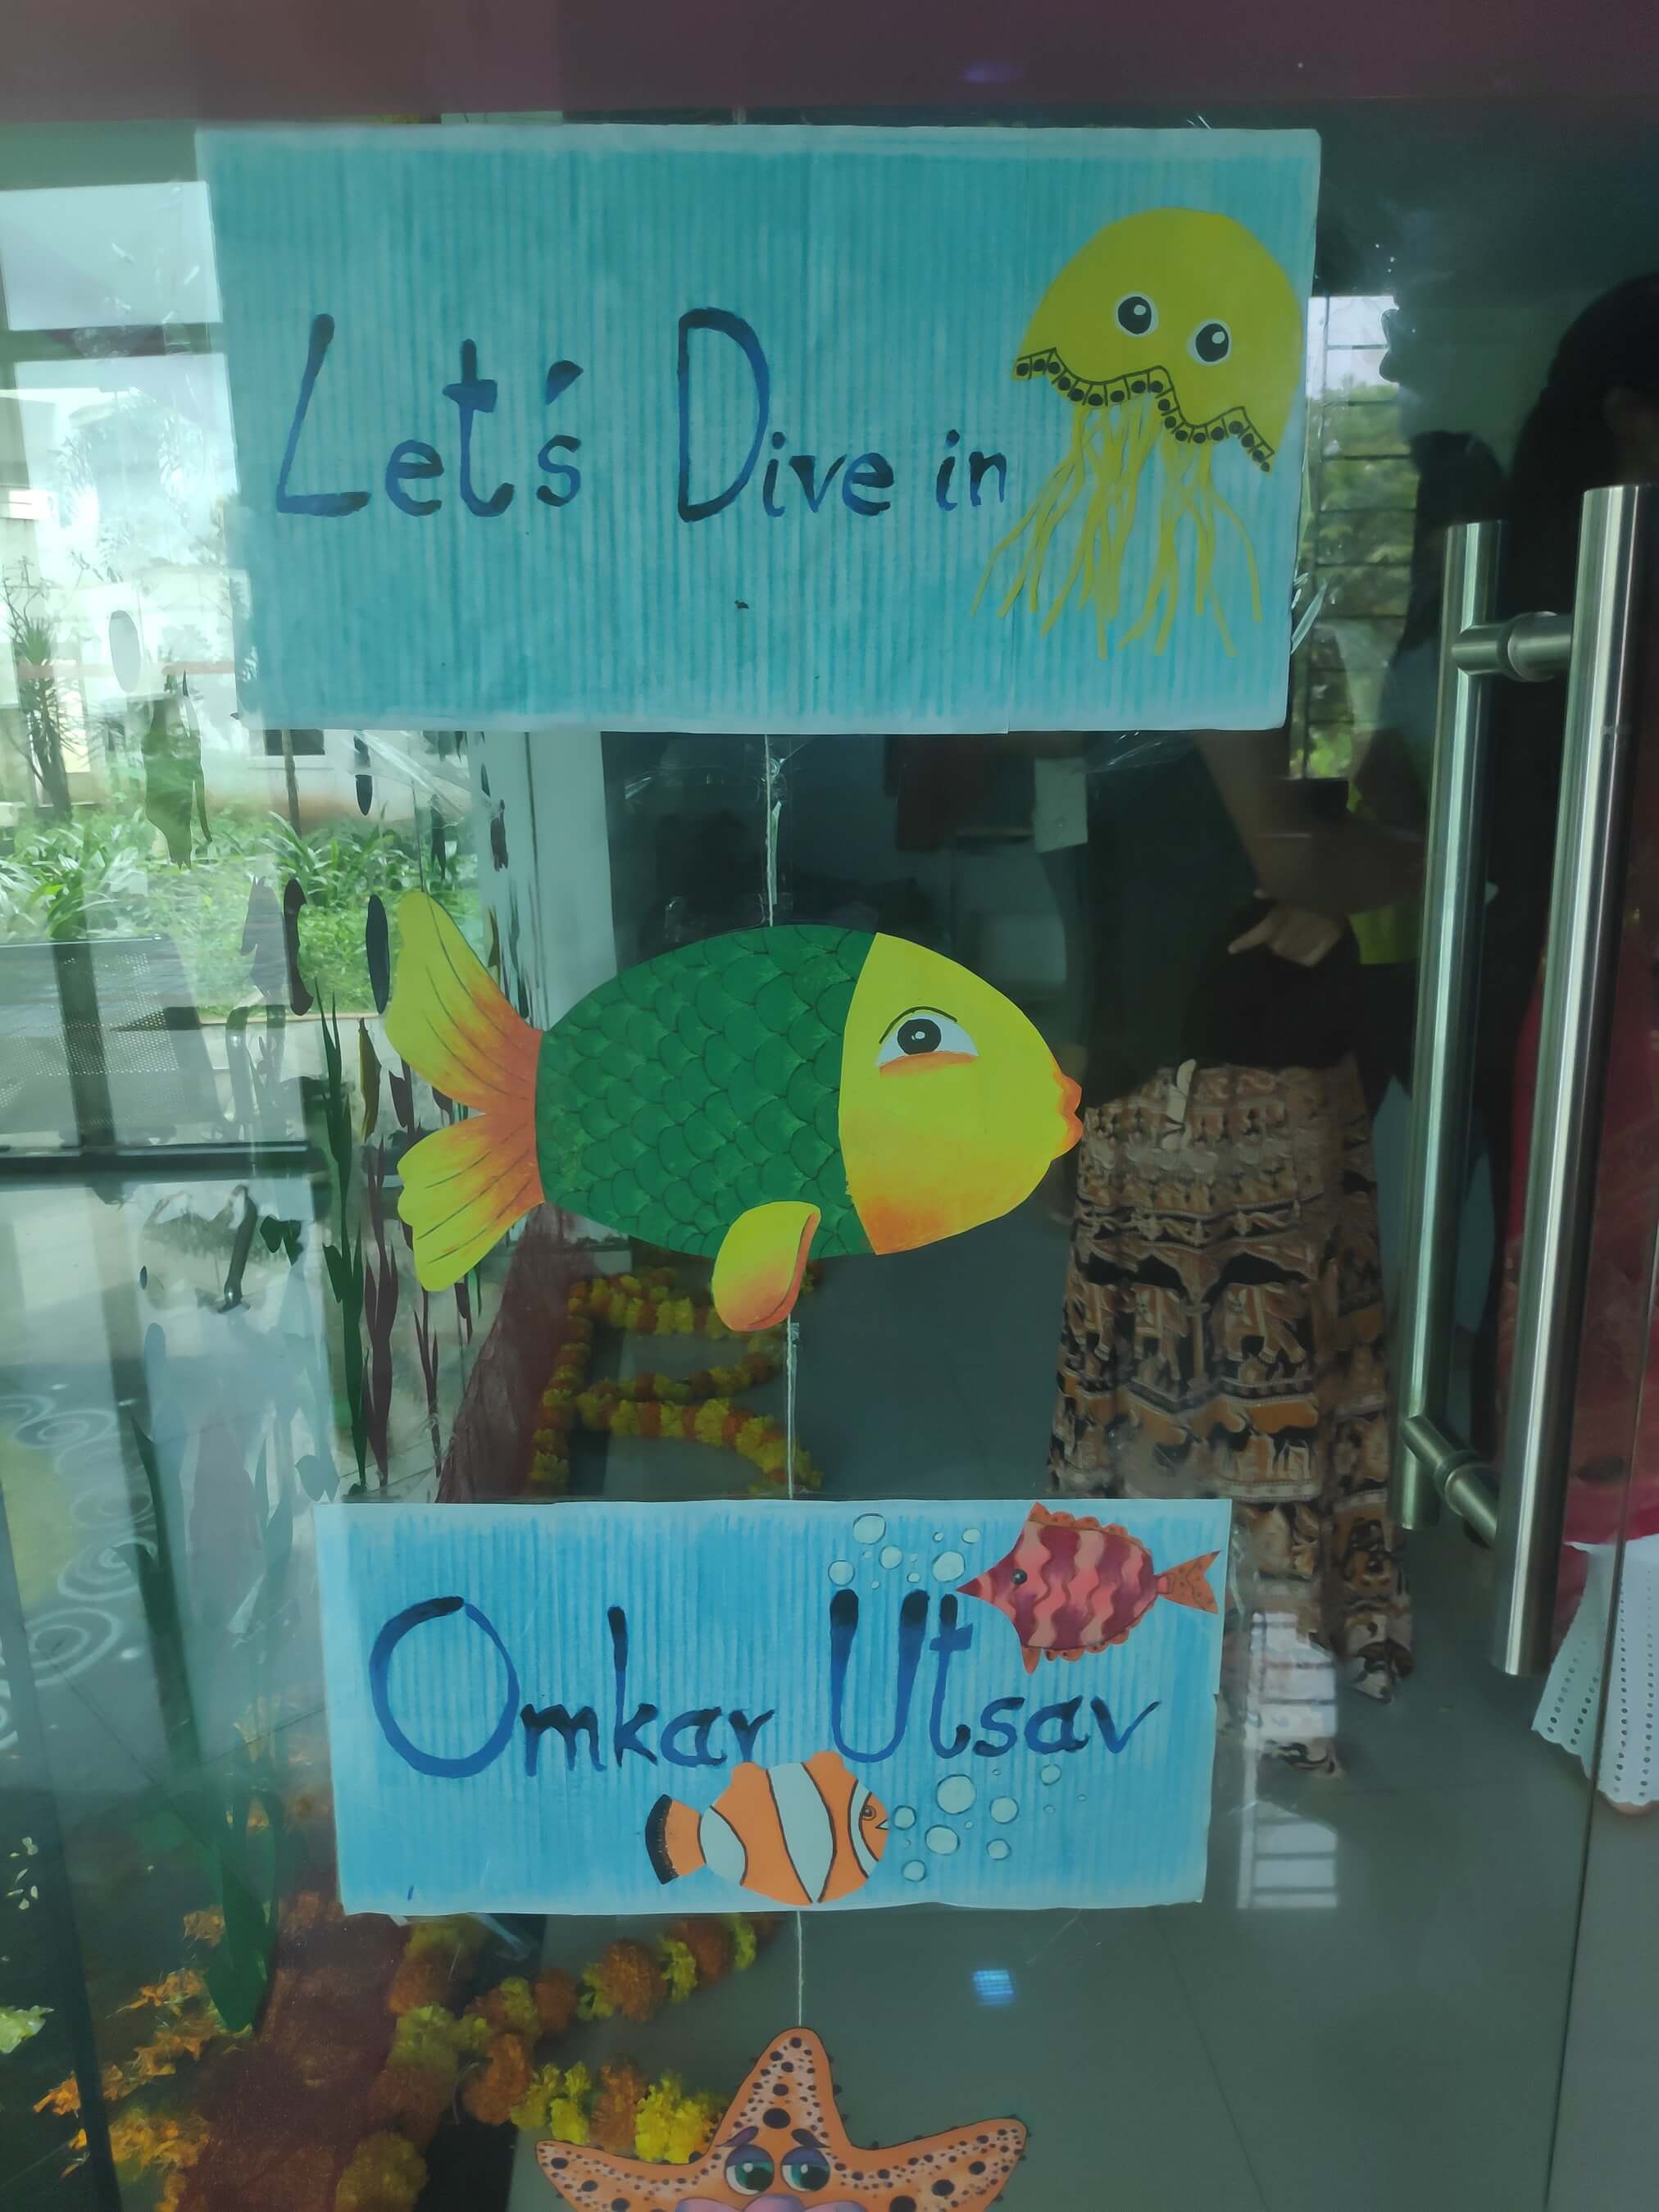 Let's Dive in
Omkar Utsav